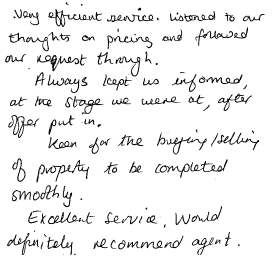 Very efficient service. Listened to our
thoughts on pricing and followed
our request through.
Always kept us informed,
at the stage we were at, after
offer put in.
Keen for the buying/selling
of property to be completed
smoothly.
Excellent service. Would
definitely recommend agent.